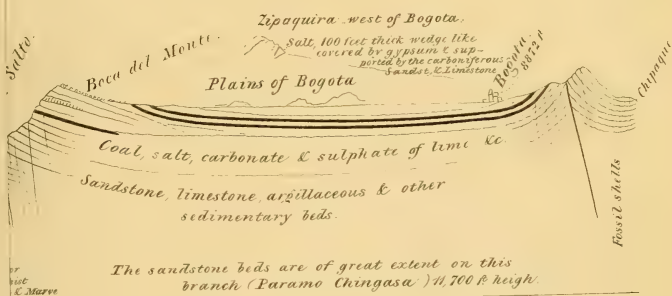 Zipaquira west of Bogota.
Salt, 100 feet thick wedge like
covered by gypsum & sup-
ported by the carboniferous
Sandst, & Limestone
Salto.
Boca del Monte.
Plains of Bogota
Bogota.
8872 ft
Chipaque
Coal, salt, carbonate & sulphate of lime &c.
Sandstone, limestone, argillaceous & other
sedimentary beds.
Fossil shells
The sandstone beds are of great extent on this
branch (Paramo Chingasa) 11,700 ft heigh.
& Marve